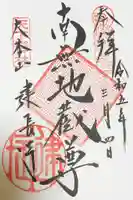 奉拝
令和五年
三月四日
南無地蔵尊
大本山
建長寺